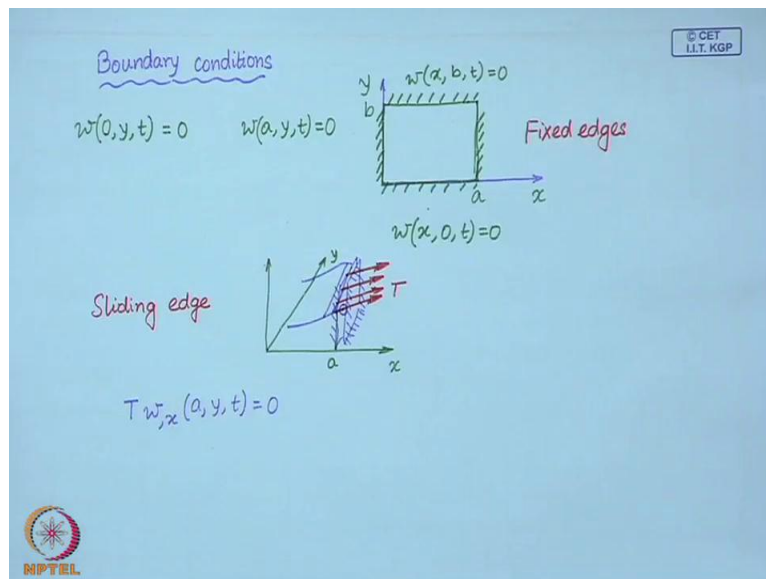 © CET
I.I.T. KGP
Boundary conditions
w(x, b, t)=0
y
b
w(0, y, t) = 0
w(a, y, t)=0
Fixed edges
a
x
w(x, 0, t)=0
y
Sliding edge
T
a
x
T w,x (a, y, t) = 0
NPTEL